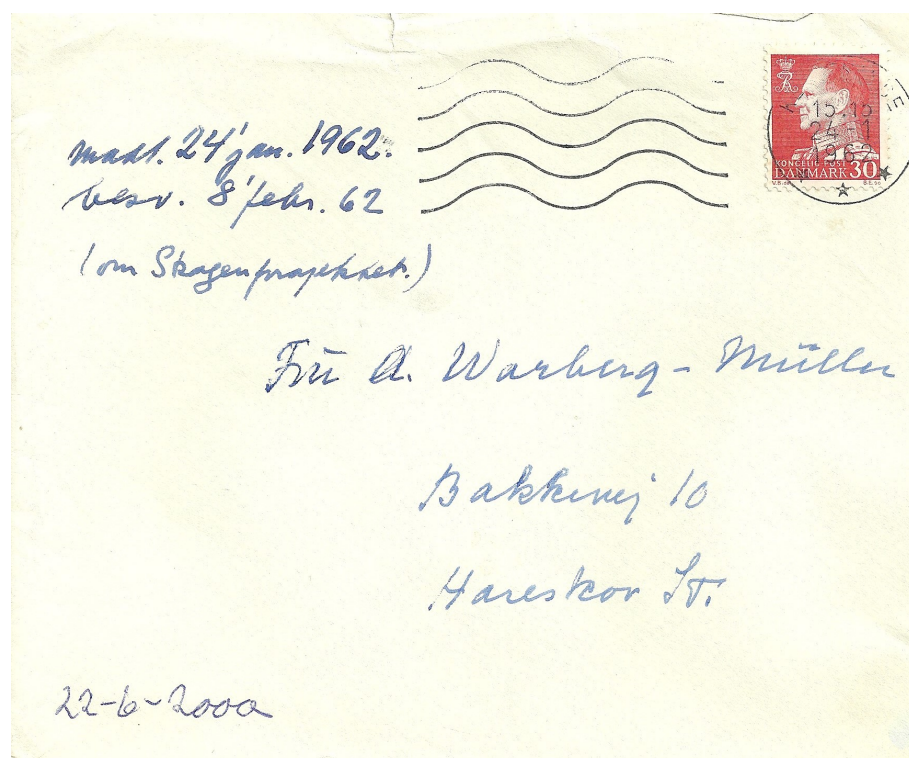 modt. 24' jan. 1962.
besv. 8' febr. 62
(om Skagenprojektet.)
15.15
24. 1
1962
KONGELIG POST
DANMARK 30
Fru A. Warberg-Müller
Bakkevej 10
Hareskov St.
22-6-2000